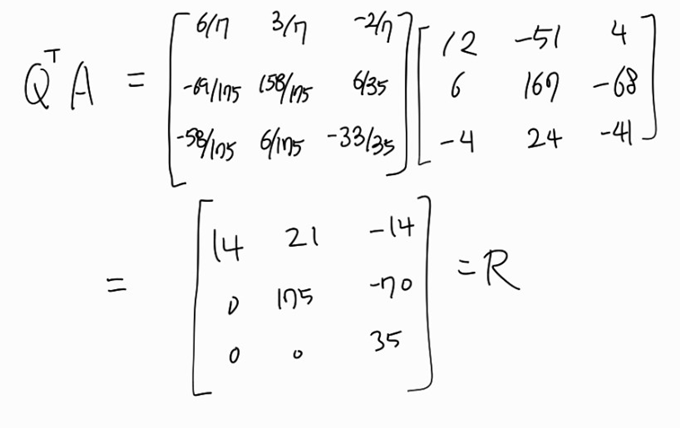 Qᵀ A = [ 6/7 3/7 -2/7 ; -69/175 158/175 6/35 ; -58/175 6/175 -33/35 ] [ 12 -51 4 ; 6 167 -68 ; -4 24 -41 ]
= [ 14 21 -14 ; 0 175 -70 ; 0 0 35 ] = R